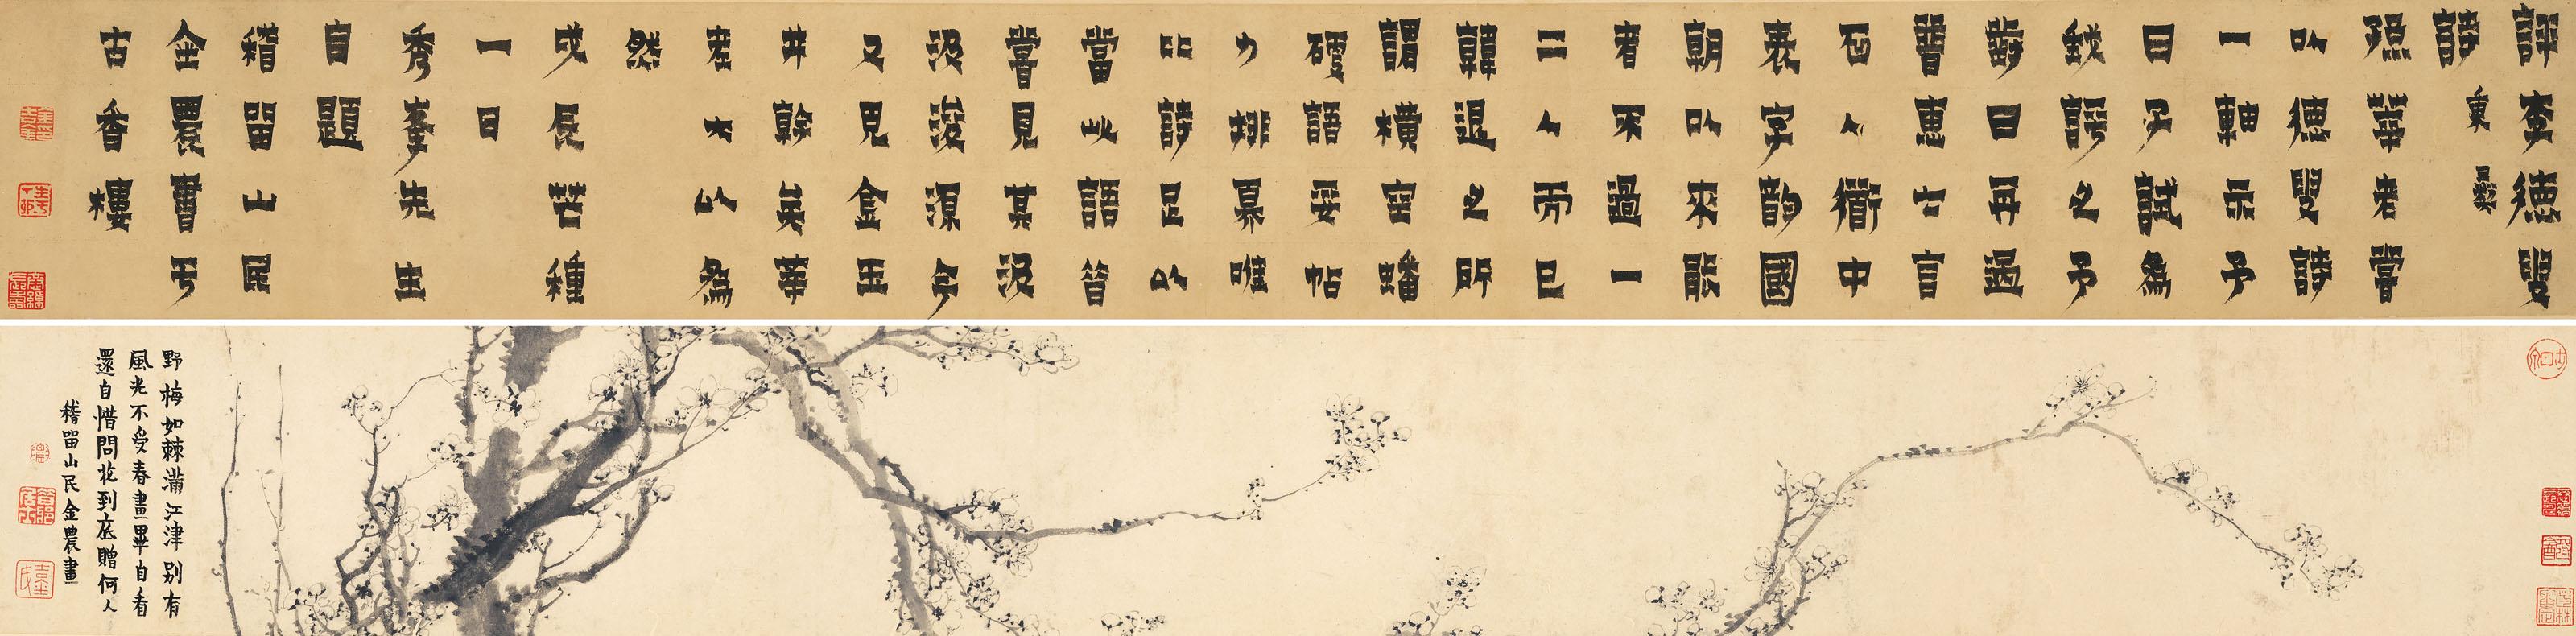 評李德叟
詩
秉彝
孫莘老嘗
以德叟詩
一軸示予
曰子試為
評之予
曰再過
中
字韻國
朝以來能
者不過一
二人而已
韓退之所
謂橫空蟠
硬語妥帖
力排奡唯
此詩足以
當此語昔
嘗見其汲
汲浚源今
又見金玉
井幹矣莘
老大以為
然
戊辰芒種
一日
秀峯先生
自題
稽留山民
金農書于
古香樓
野梅如棘滿江津別有
風光不受春畫畢自看
還自惜問花到底贈何人
稽留山民金農畫